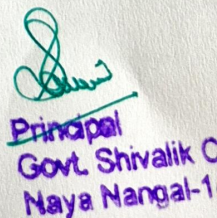 Principal
Govt. Shivalik C
Naya Nangal-1